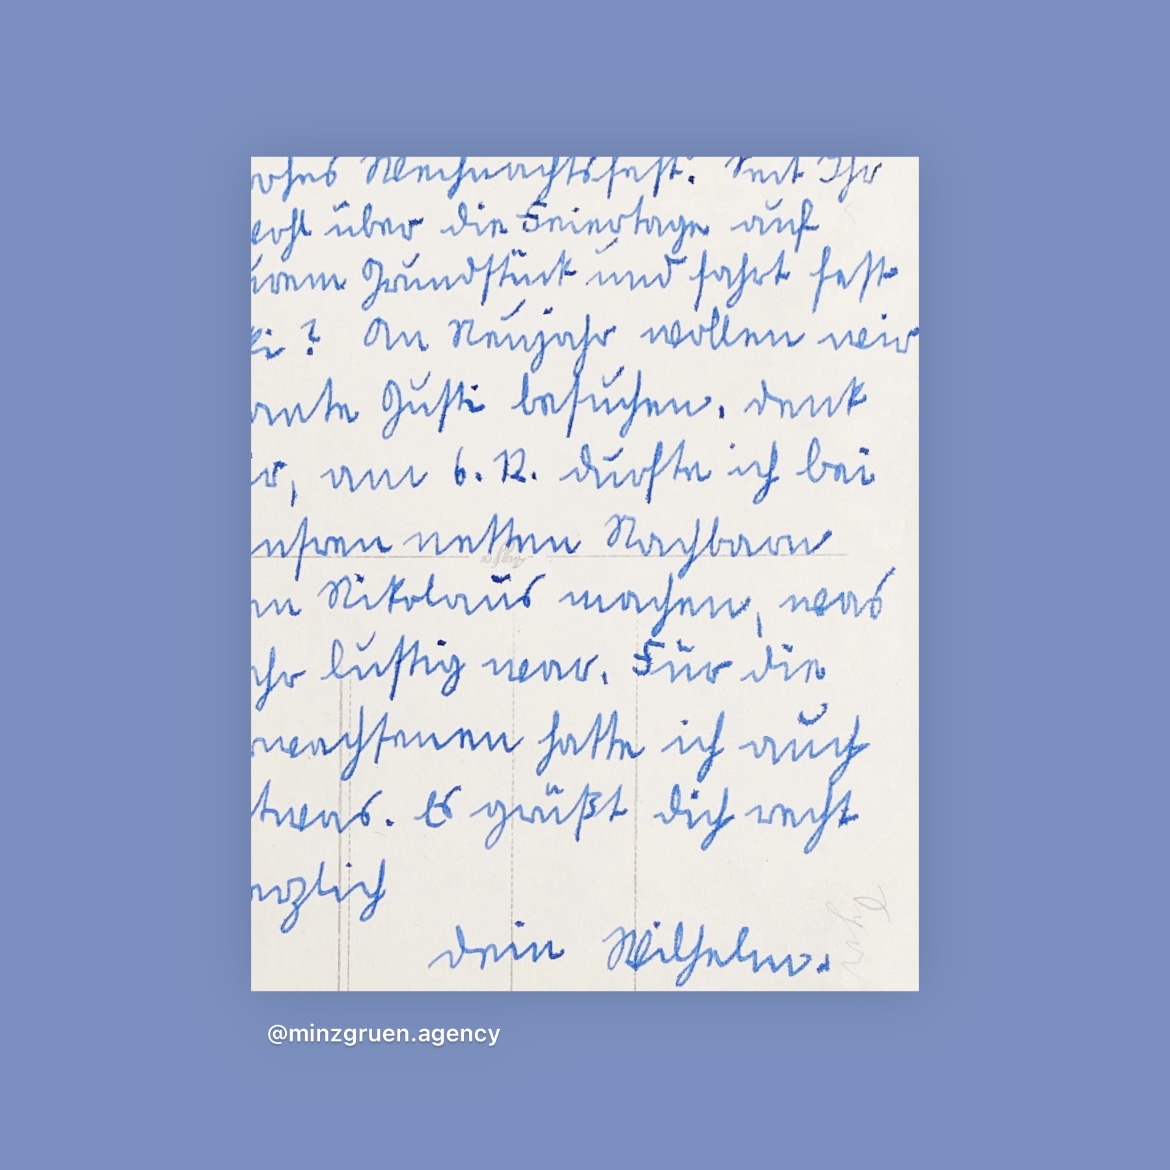 rohes Weihnachtsfest. Seit Ihr
wohl über die Feiertage auf
urem Grundstück und fahrt fest
ki? An Neujahr wollen wir
ante Gusti besuchen. denk
ir, am 6. 12. durfte ich bei
unsren netten Nachbarn
en Nikolaus machen, was
ehr lustig war. Für die
rwachsenen hatte ich auch
twas. Es grüßt dich recht
erzlich
dein Wilhelm.
@minzgruen.agency